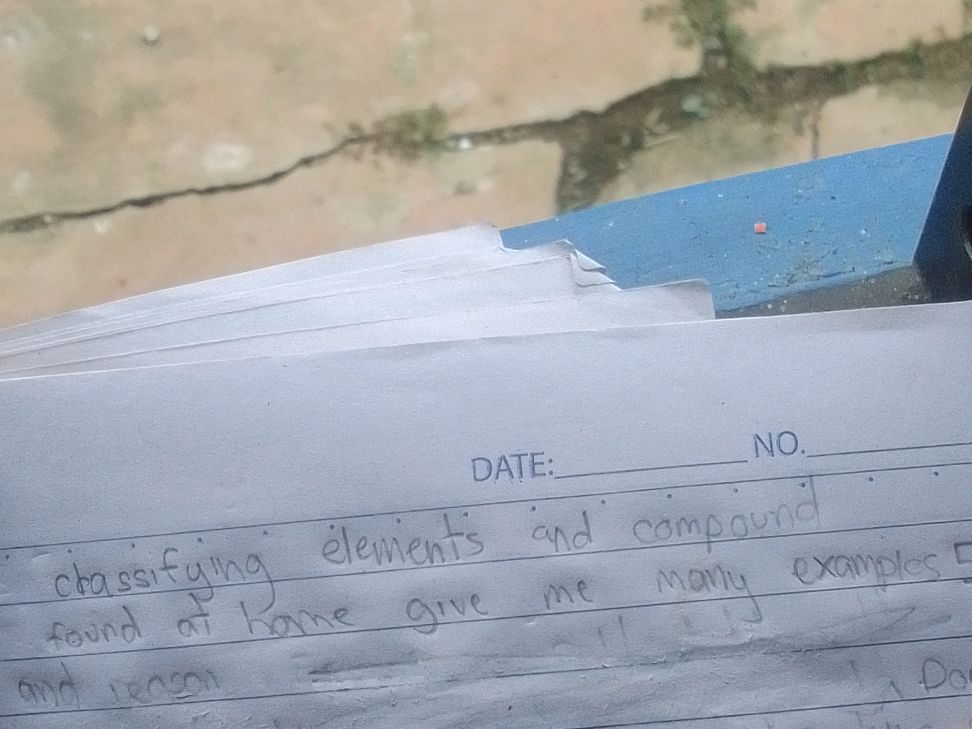 DATE: NO.
classifying elements and compound
found at home give me many examples 5
and reason
Do